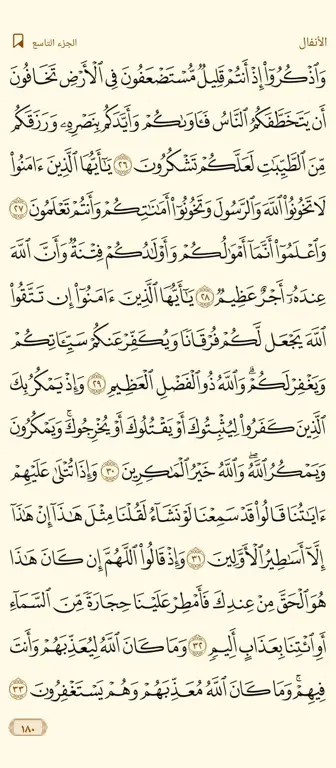 الأنفال
الجزء التاسع
وَاذْكُرُوا إِذْ أَنتُمْ قَلِيلٌ مُّسْتَضْعَفُونَ فِي الْأَرْضِ تَخَافُونَ
أَن يَتَخَطَّفَكُمُ النَّاسُ فَـَٔاوَىٰكُمْ وَأَيَّدَكُم بِنَصْرِهِۦ وَرَزَقَكُم
مِّنَ الطَّيِّبَٰتِ لَعَلَّكُمْ تَشْكُرُونَ ٢٦ يَٰٓأَيُّهَا الَّذِينَ ءَامَنُوا
لَا تَخُونُوا اللَّهَ وَالرَّسُولَ وَتَخُونُوٓا أَمَٰنَٰتِكُمْ وَأَنتُمْ تَعْلَمُونَ ٢٧
وَاعْلَمُوٓا أَنَّمَآ أَمْوَٰلُكُمْ وَأَوْلَٰدُكُمْ فِتْنَةٌ وَأَنَّ اللَّهَ
عِندَهُۥٓ أَجْرٌ عَظِيمٌ ٢٨ يَٰٓأَيُّهَا الَّذِينَ ءَامَنُوٓا إِن تَتَّقُوا
اللَّهَ يَجْعَل لَّكُمْ فُرْقَانًا وَيُكَفِّرْ عَنكُمْ سَيِّـَٔاتِكُمْ
وَيَغْفِرْ لَكُمْ ۗ وَاللَّهُ ذُو الْفَضْلِ الْعَظِيمِ ٢٩ وَإِذْ يَمْكُرُ بِكَ
الَّذِينَ كَفَرُوا لِيُثْبِتُوكَ أَوْ يَقْتُلُوكَ أَوْ يُخْرِجُوكَ ۚ وَيَمْكُرُونَ
وَيَمْكُرُ اللَّهُ ۖ وَاللَّهُ خَيْرُ الْمَٰكِرِينَ ٣٠ وَإِذَا تُتْلَىٰ عَلَيْهِمْ
ءَايَٰتُنَا قَالُوا قَدْ سَمِعْنَا لَوْ نَشَآءُ لَقُلْنَا مِثْلَ هَٰذَآ ۙ إِنْ هَٰذَآ
إِلَّآ أَسَٰطِيرُ الْأَوَّلِينَ ٣١ وَإِذْ قَالُوا اللَّهُمَّ إِن كَانَ هَٰذَا
هُوَ الْحَقَّ مِنْ عِندِكَ فَأَمْطِرْ عَلَيْنَا حِجَارَةً مِّنَ السَّمَآءِ
أَوِ ائْتِنَا بِعَذَابٍ أَلِيمٍ ٣٢ وَمَا كَانَ اللَّهُ لِيُعَذِّبَهُمْ وَأَنتَ
فِيهِمْ ۚ وَمَا كَانَ اللَّهُ مُعَذِّبَهُمْ وَهُمْ يَسْتَغْفِرُونَ ٣٣
١٨٠